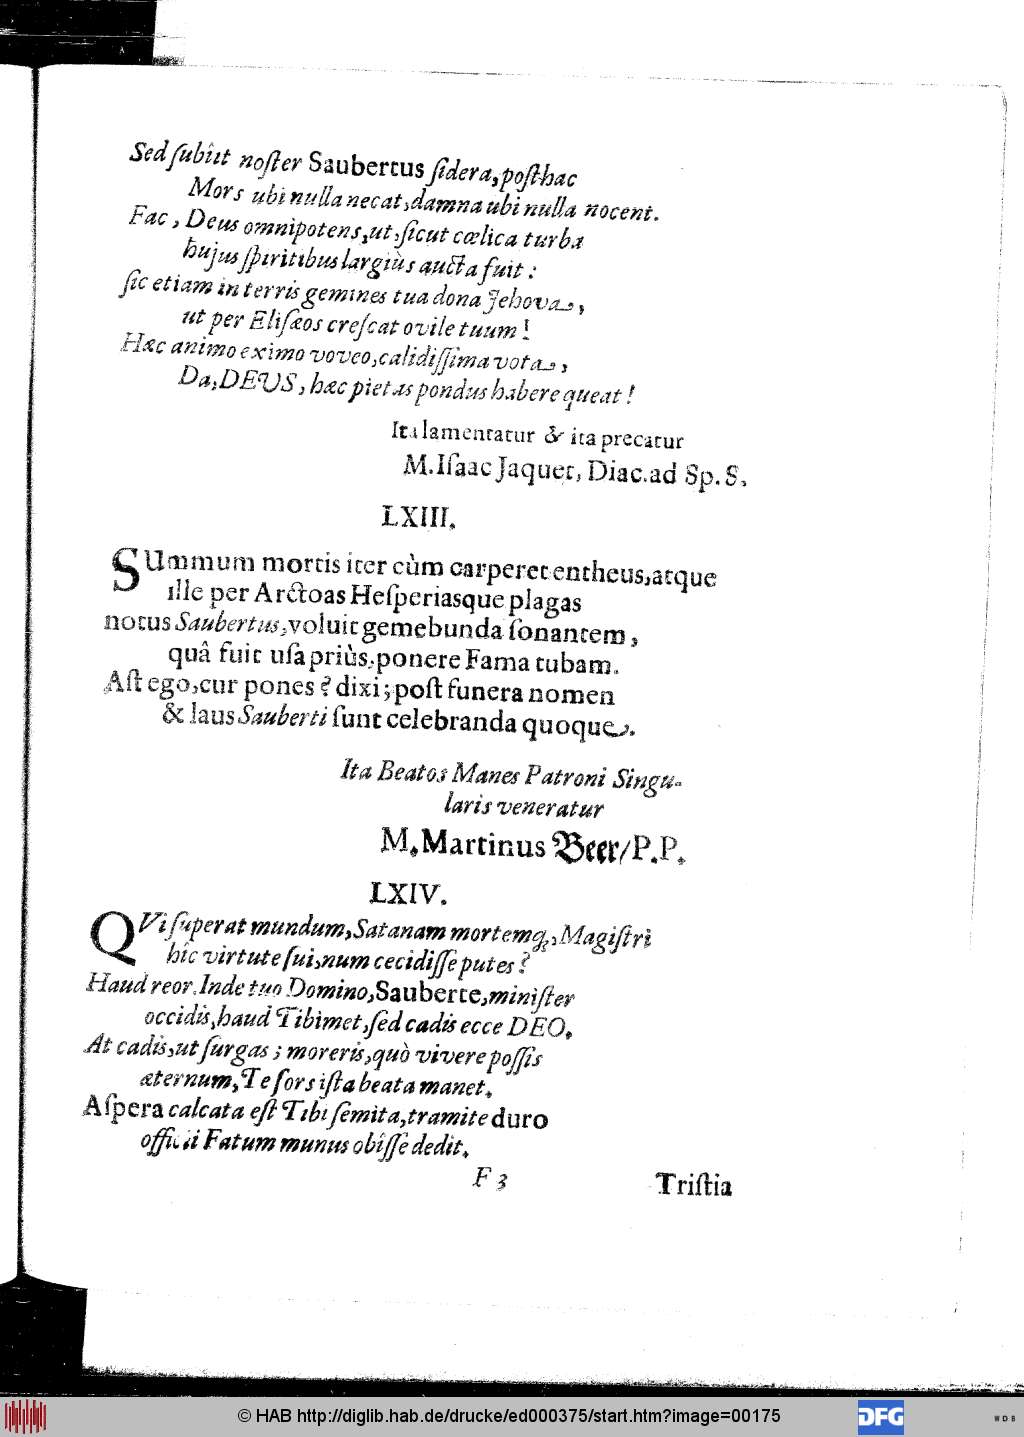 Sed ſubîıt noſter Saubertus ſidera, poſthac
Mors ubi nulla necat, damna ubi nulla nocent.
Fac, Deus omnipotens, ut, ſicut cœlica turba
hujus ſpiritibus largiùs aucta fuit:
ſic etiam in terris gemines tua dona Jehova,
ut per Eliſæos creſcat ovile tuum!
Hæc animo eximo voveo, calidiſſima vota,
Da, DEUS, hæc pietas pondus habere queat!
Ita lamentatur & ita precatur
M. Iſaac Jaquet, Diac. ad Sp. S.
LXIII.
SUmmum mortis iter cùm carperet entheus, atque
ille per Arctoas Heſperiasque plagas
notus Saubertus, voluit gemebunda ſonantem,
quâ fuit uſa priùs, ponere Fama tubam.
Aſt ego, cur pones? dixi; poſt funera nomen
& laus Sauberti ſunt celebranda quoque.
Ita Beatos Manes Patroni Singu-
laris veneratur
M. Martinus Beer/ P. P.
LXIV.
QVi ſuperat mundum, Satanam mortemq;, Magiſtri
hîc virtute ſui, num cecidiſſe putes?
Haud reor. Inde tuo Domino, Sauberte, miniſter
occidis, haud Tibimet, ſed cadis ecce DEO.
At cadis, ut ſurgas; moreris, quò vivere poſſis
æternum, Te ſors iſta beata manet.
Aſpera calcata eſt Tibi ſemita, tramite duro
officii Fatum munus obîſſe dedit.
F 3
Triſtia
© HAB http://diglib.hab.de/drucke/ed000375/start.htm?image=00175
DFG
WDB